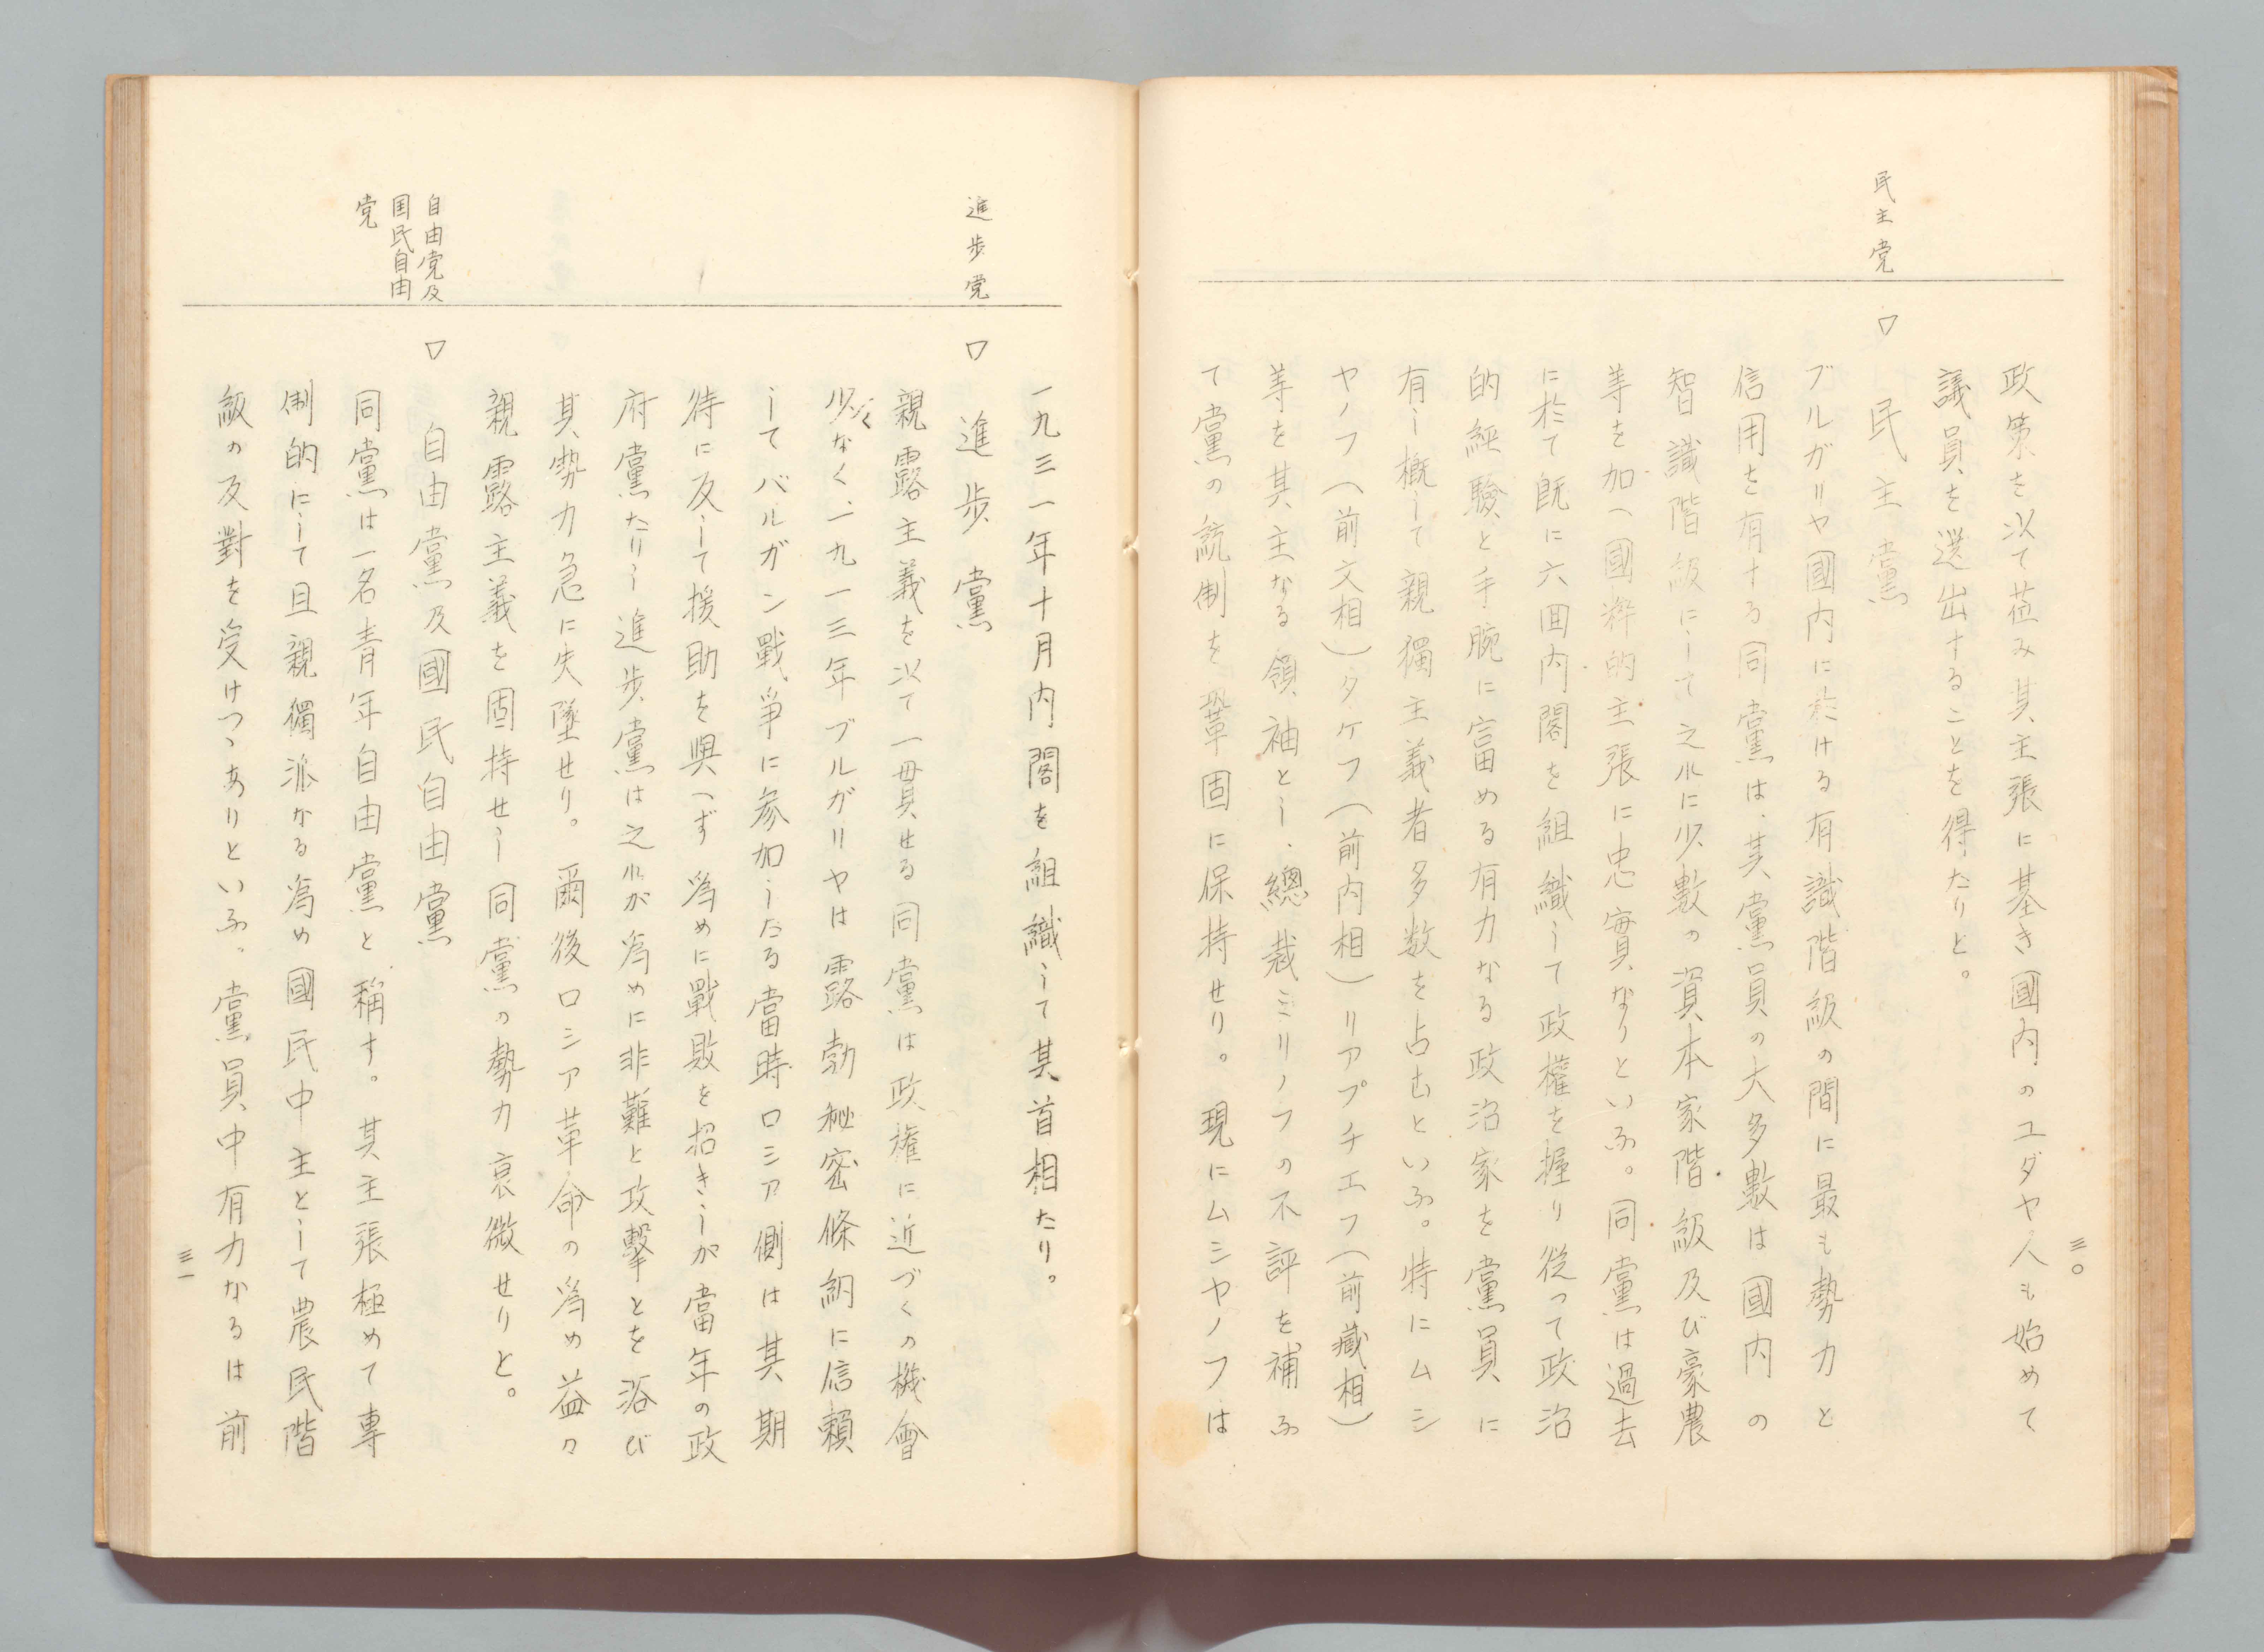 三〇
政策を以て莅み其主張に基き國内のユダヤ人も始めて
議員を選出することを得たりと。
民主党
□ 民主黨
ブルガリヤ國内に於ける有識階級の間に最も勢力と
信用を有する同黨は、其黨員の大多數は國内の
智識階級にして之れに少數の資本家階級及び豪農
等を加へ國粹的主張に忠實なりといふ。同黨は過去
に於て既に六回内閣を組織して政權を握り從って政治
的經驗と手腕に富める有力なる政治家を黨員に
有し概して親獨主義者多数を占むといふ。特にムシ
ヤノフ(前文相)タケフ(前内相)リアプチエフ(前藏相)
等を其主なる領袖とし、總裁ミリノフの不評を補ふ
て黨の統制を鞏固に保持せり。現にムシヤノフは
一九三一年十月内閣を組織して其首相たり。
進歩党
□ 進歩黨
親露主義を以て一貫せる同黨は政権に近づくの機會
少なく、一九一三年ブルガリヤは露勃秘密條約に信賴
してバルガン戰爭に参加したる當時ロシア側は其期
待に反して援助を與へず爲めに戰敗を招きしが當年の政
府黨たりし進歩黨は之れが爲めに非難と攻擊とを浴び
其勢力急に失墜せり。爾後ロシア革命の爲め益々
親露主義を固持せし同黨の勢力衰微せりと。
自由党及
国民自由
党
□ 自由黨及國民自由黨
同黨は一名青年自由黨と稱す。其主張極めて專
制的にして且親獨派なる爲め國民中主として農民階
級の反對を受けつゝありといふ。黨員中有力なるは前
三一